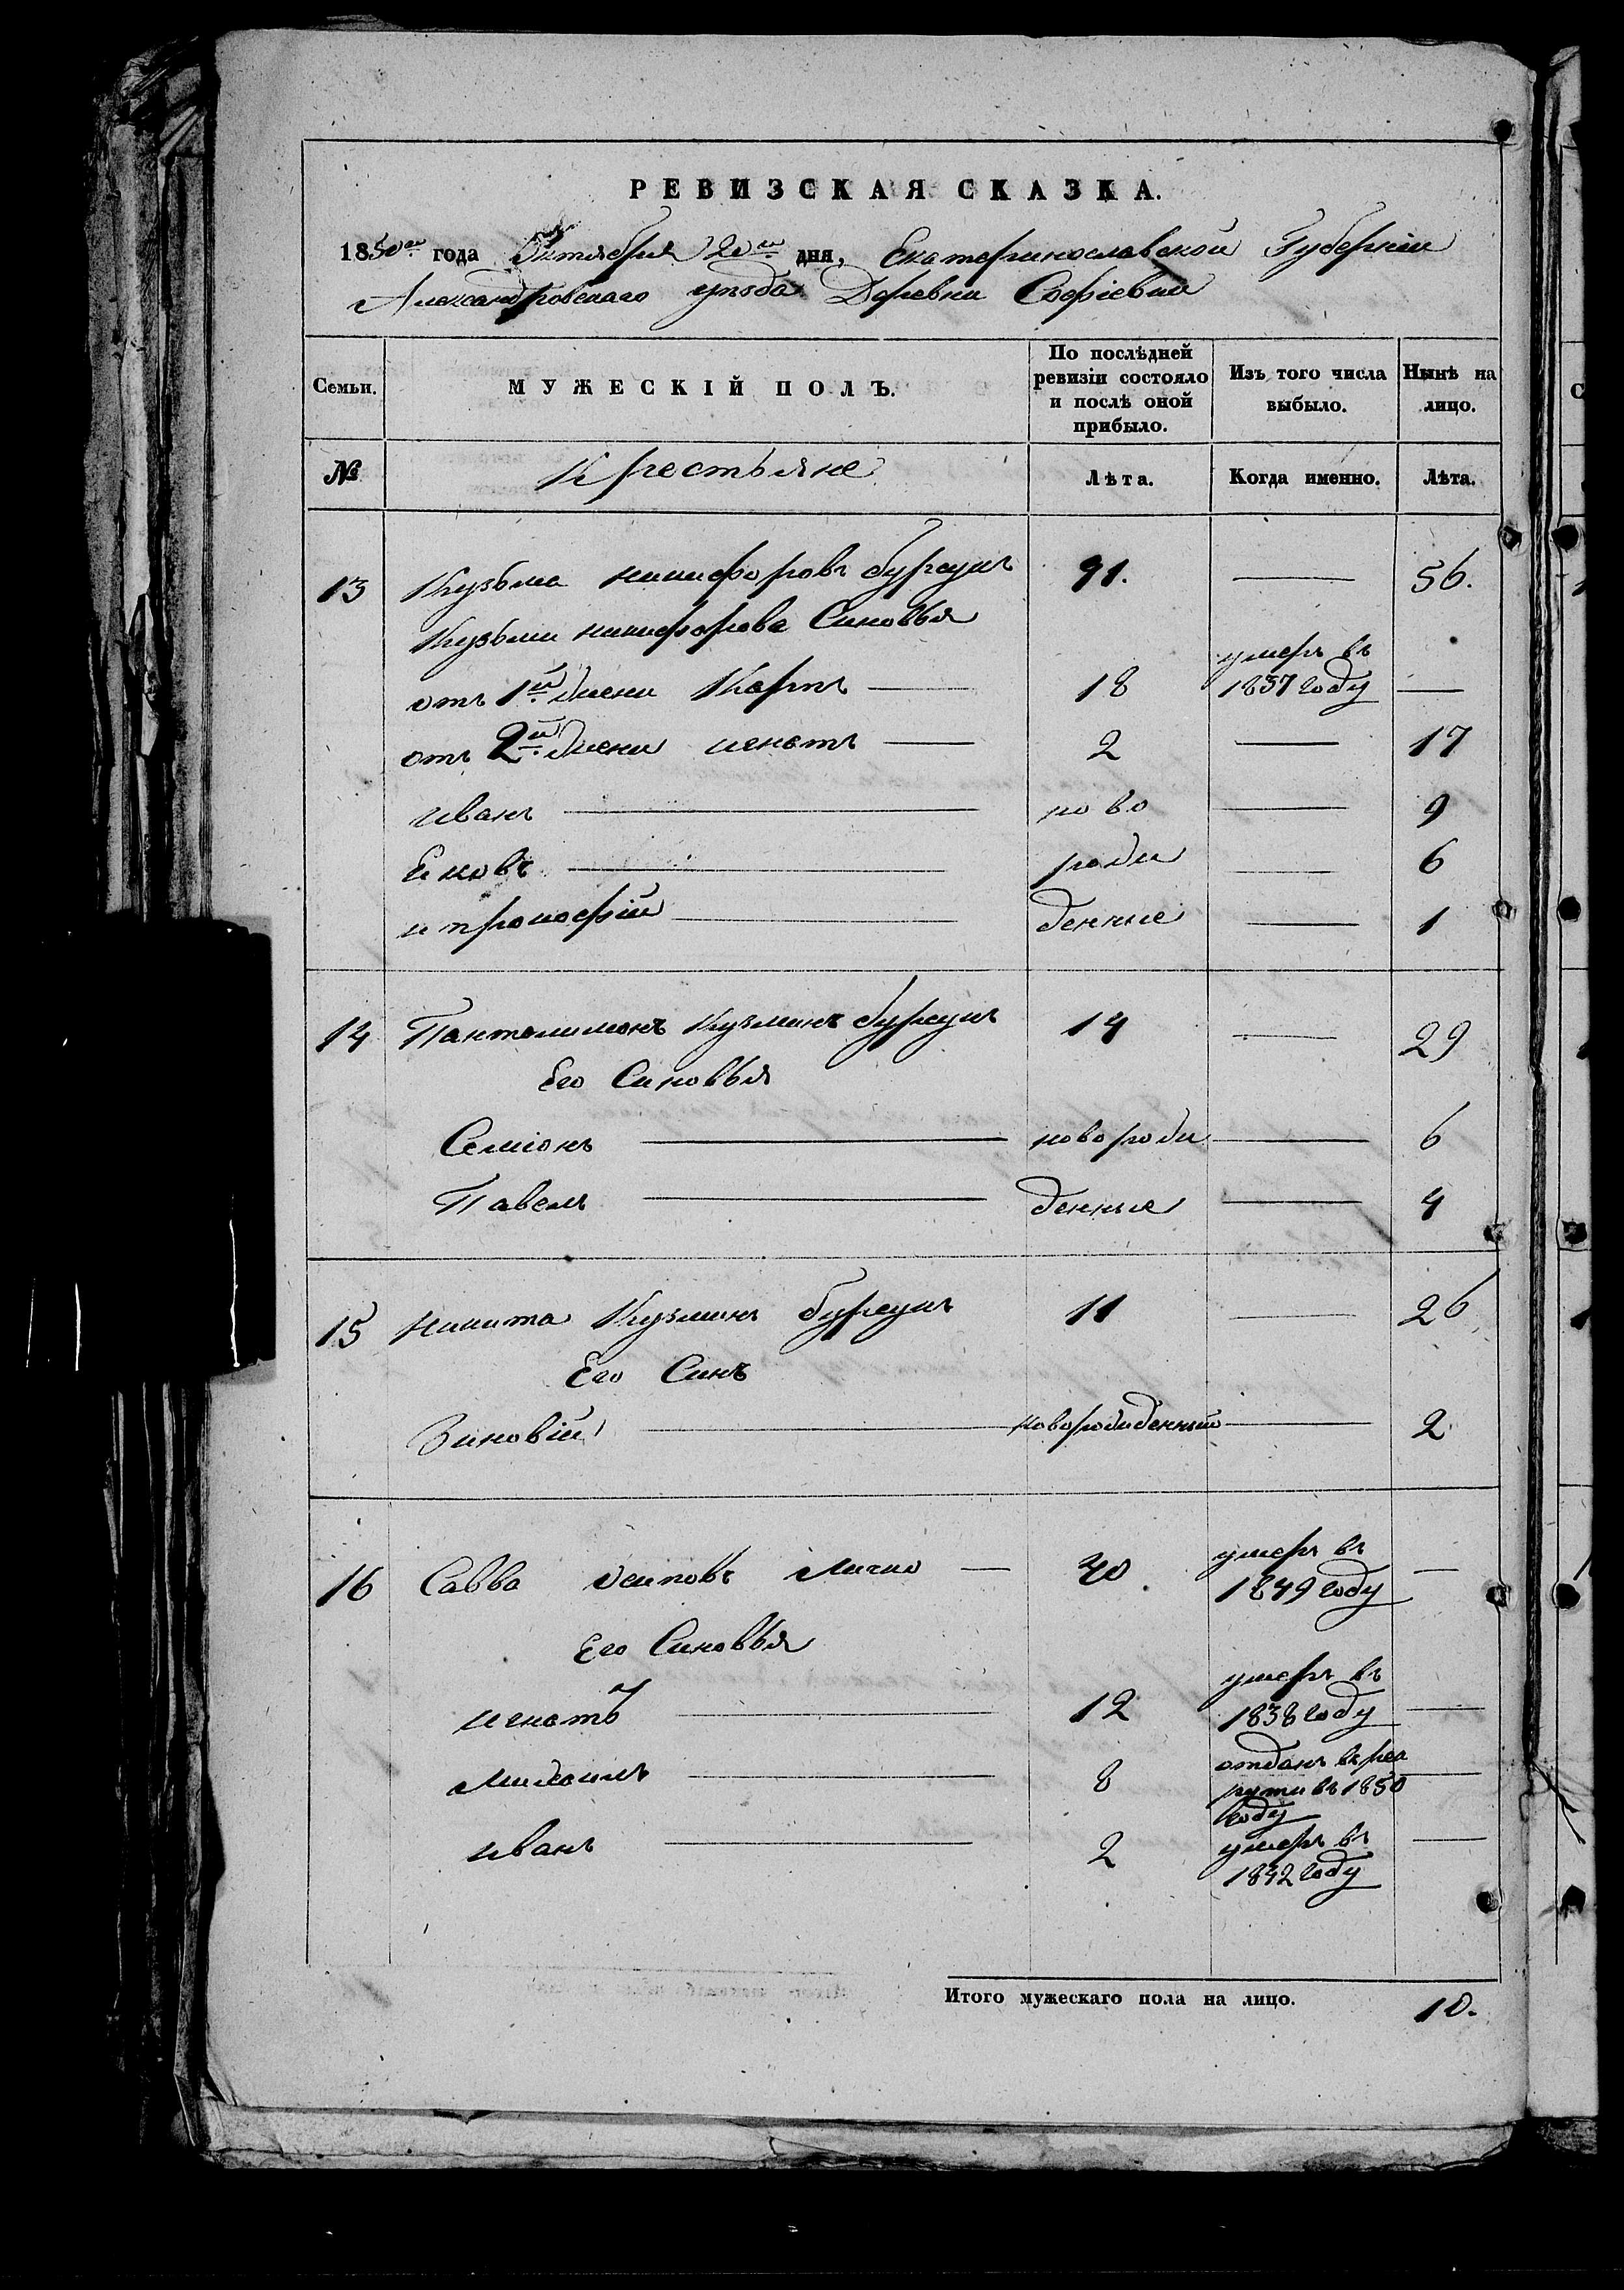 РЕВИЗСКАЯ СКАЗКА.
1850го года Октября 20го дня, Екатеринославской Губерніи
Александровскаго уѣзда Деревни Софіевки
Семьи. МУЖЕСКІЙ ПОЛЪ. По послѣдней ревизіи состояло и послѣ оной прибыло. Изъ того числа выбыло. Нынѣ на лицо.
№ Крестьяне Лѣта. Когда именно. Лѣта.
13 Кузьма никифоровъ бурсукъ 41. — 56.
Кузьми никифорова Синовья
отъ 1й жени Карпъ — 18 умеръ въ 1837 году —
отъ 2й жени игнатъ — 2 — 17
иванъ — ново — 9
Яковъ — рож — 6
и прокофій — денные — 1
14 Пантелимонъ Кузминъ бурсукъ 14 — 29
Его Синовья
Семіонъ — новорож — 6
Павелъ — денные — 4
15 никита Кузминъ бурсукъ 11 — 26
Его Синъ
Зиновій — новорожденный — 2
16 Савва Осиповъ — 40. умеръ въ 1849 году —
Его Синовья
игнатъ — 12 умеръ въ 1838 году —
Михаилъ — 8 отданъ въ рекрути въ 1850 году —
иванъ — 2 умеръ въ 1842 году —
Итого мужескаго пола на лицо. 10.